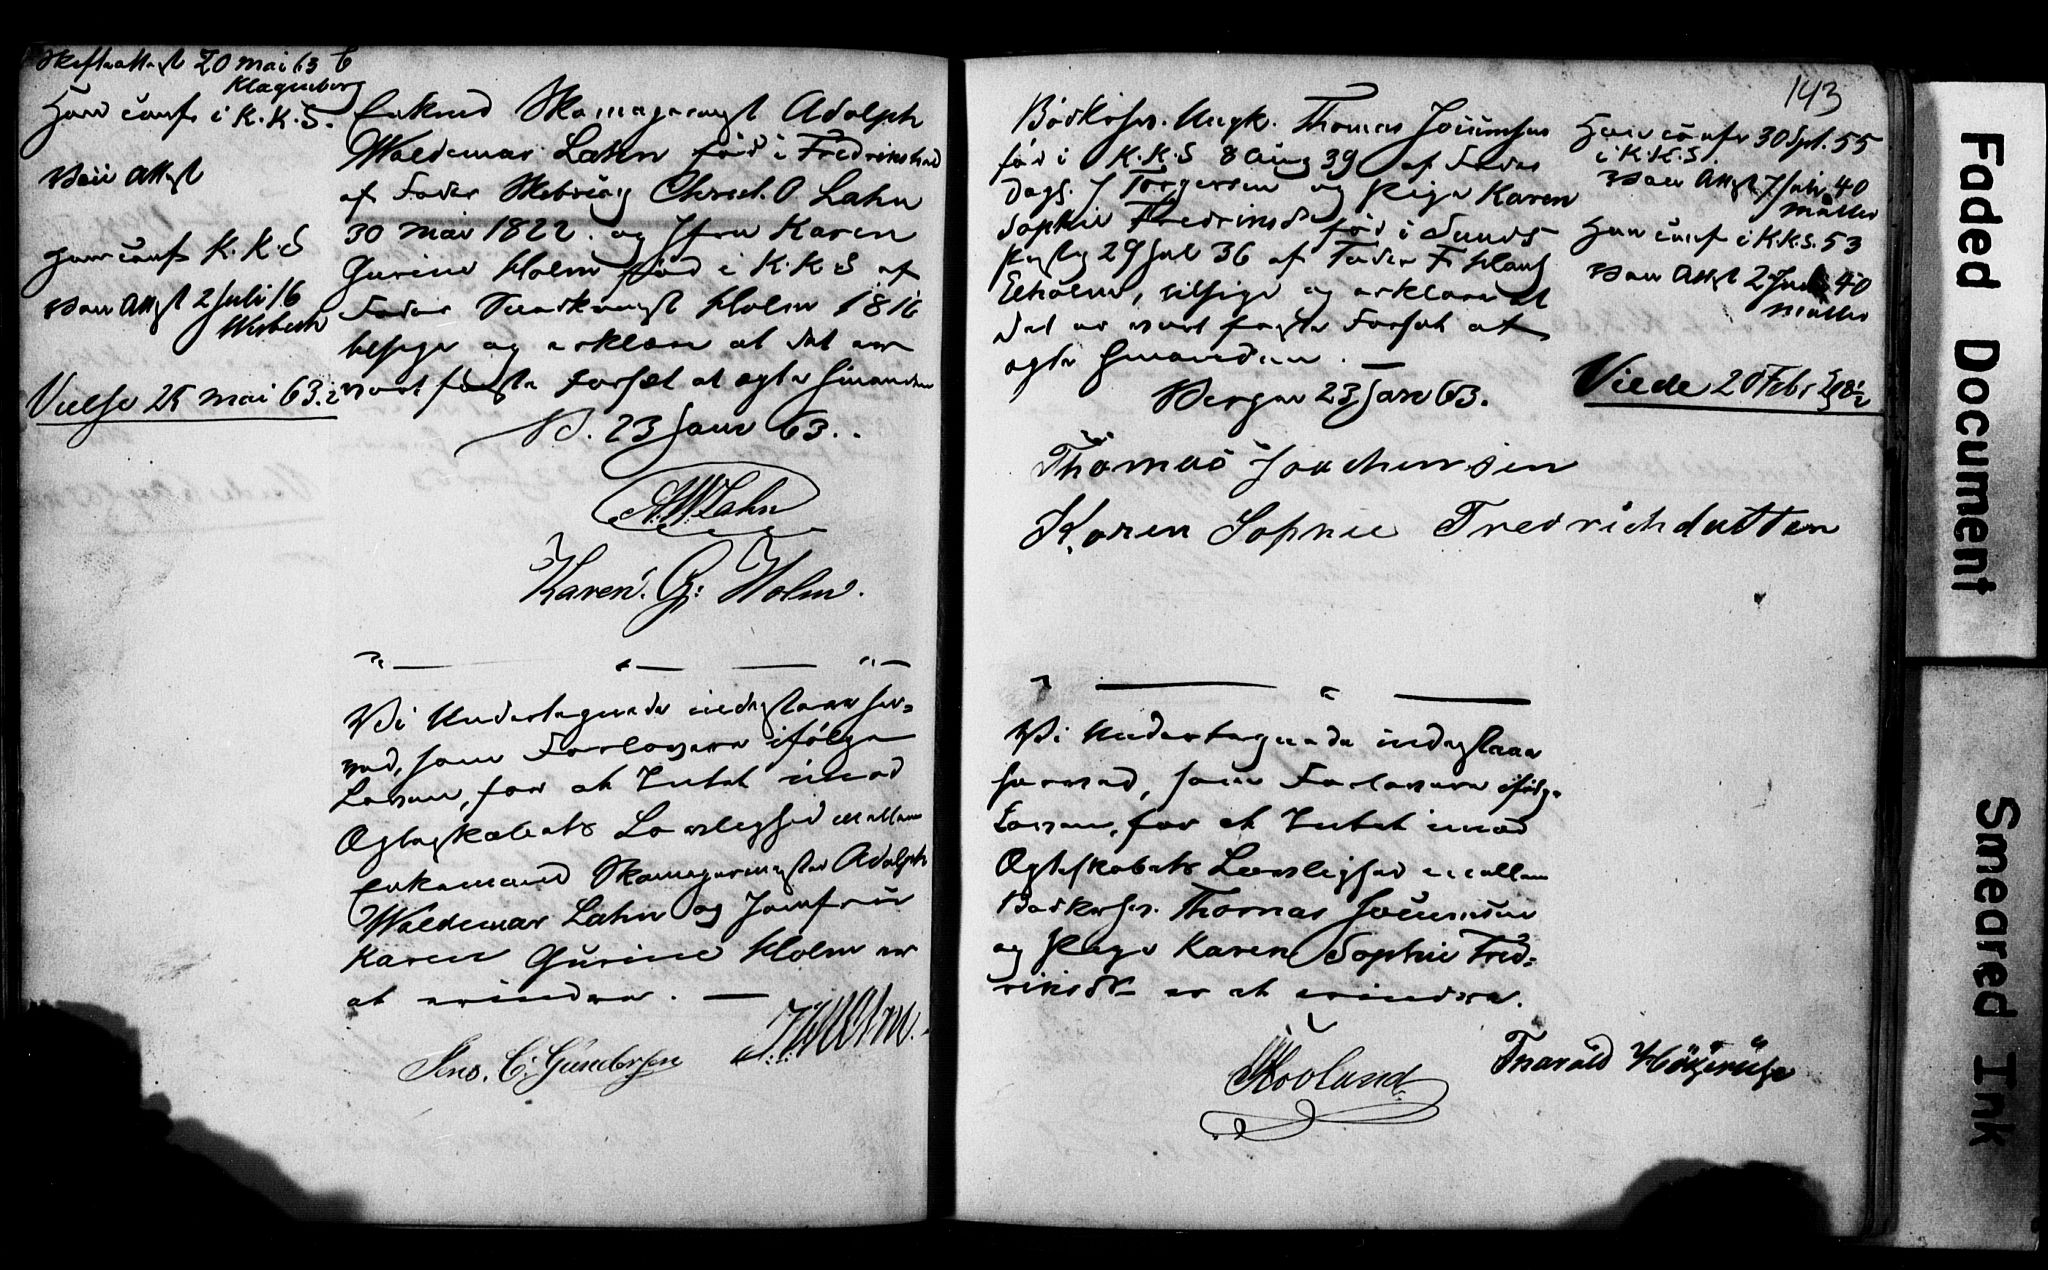 Skifteattest 20 mai 63
Klagenberg
Han conf i K.K.S.
Vacc Attest
Hun conf K.K.S
Vacc Attest 2 Juli 16
Wisbech
Vielse 25 mai 63.
Enkmd Skomagermest Adolph
Waldemar Lahn född i Fredrikshad
af Fader Skebring Christ. O Lahn
30 mai 1822. og Jfru Karen
Gurine Holm fød i K.K.S af
Fader Holm 1816
tilsige og erklære at det er
vort faste Forsæt at ægte hinanden
B. 23 Janr 63.
A.W.Lahn
Karen. G: Holm.
Vi Undertegnede indestaar her-
ved, som Forlovere ifølge
Loven, for at Intet imod
Ægteskabets Lovlighed mellem
Enkemand Skomagermester Adolph
Waldemar Lahn og Jomfru
Karen Gurine Holm er
at erindre.
Jens. C. Gundersen
143
Bødkersv. Ungk. Thomas Jocumsen
fød i K.K.S 8 Aug 39 af Fader
Dags. J Torgersen og Pige Karen
Sophie Fredriksd fød i Sunds
Prestg 29 Jul 36 af Fader F. Hans
Ekholm, tilsige og erklære at
det er vort faste Forsæt at
ægte hinanden.
Bergen 23 Janr 63.
Han conf 30 Spt. 55
i K.K.S.
Vacc Attest 7 Juli 40
Møller
Hun conf i K.K.S. 53
Vacc Attest 2 Juli 40
Møller
Viede 20 Febr
Thomas Joachimsen
Karen Sophie Fredrichdatter
Vi Undertegnede indestaar
herved, som Forlovere ifølge
Loven, for at Intet imod
Ægteskabets Lovlighed mellem
Bødkersv. Thomas Jocumsen
og Pige Karen Sophie Fred-
riksd er at erindre.
Hovland
Tharald
Faded Document
Smeared Ink